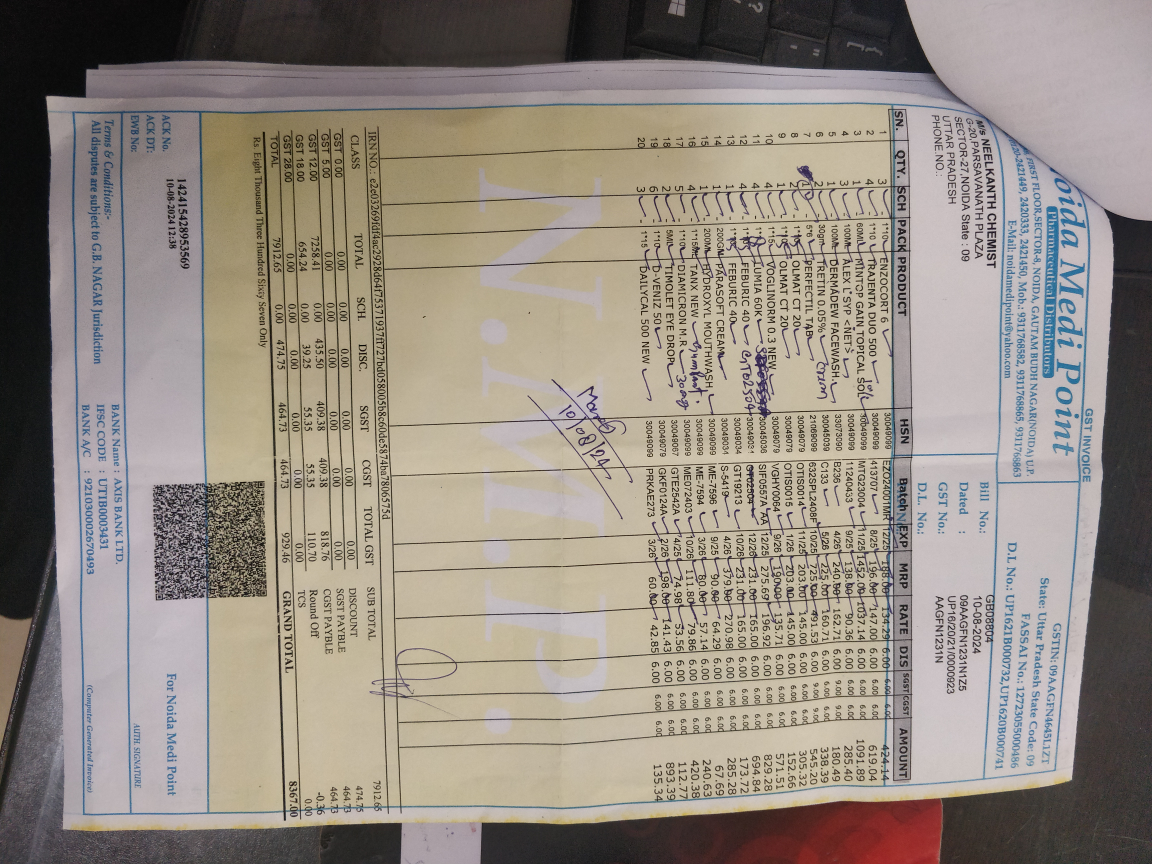 GST INVOICE
oida Medi Point
Pharmaceutical Distributors
FIRST FLOOR,SECTOR-8, NOIDA, GAUTAM BUDH NAGAR(NOIDA) U.P.
0120-2421449, 2420333, 2421450, Mob.: 9311768582, 9311768865, 9311768863
E-Mail: noidamedipoint@yahoo.com
GSTIN: 09AAGFN4645L1ZT
State: Uttar Pradesh State Code: 09
FASSAI No.: 12723055000486
D.L No.: UP1621B000732,UP1620B000741
M/s NEELKANTH CHEMIST
G-20,PARSAVANATH PLAZA
SECTOR-27,NOIDA State : 09
UTTAR PRADESH
PHONE NO.:
Bill No.: GB08804
Dated : 10-08-2024
GST No.: 09AAGFN1231N1Z5
D.L. No.: UP16/20/21/0000923
AAGFN1231N
SN. QTY. SCH PACK PRODUCT HSN Batch EXP MRP RATE DIS SGST CGST AMOUNT
1 3 1*10 ENZOCORT 6 30049099 EZO24001MR 12/25 188.00 134.29 6.00 6.00 6.00 424.14
2 4 1*10 TRAJENTA DUO 500 30049099 413707 8/25 196.00 147.00 6.00 6.00 6.00 619.04
3 1 60ML MINTOP GAIN TOPICAL SOL 30049099 MTG23004 11/25 1452.00 1037.14 6.00 6.00 6.00 1091.89
4 3 100ML ALEX L SYP <NET> 30049099 11240433 9/25 138.00 90.36 6.00 6.00 6.00 285.40
5 1 100ML DERMADEW FACEWASH 33073090 B236 4/26 240.00 162.71 6.00 9.00 9.00 180.49
6 2 30gm TRETIN 0.05% cream 30045039 C133 5/26 225.00 160.71 6.00 6.00 6.00 338.39
7 1 5*6 PERFECTIL TAB 21069099 632SPL2408F 10/25 725.00 491.53 6.00 9.00 9.00 545.20
8 2 1*15 OLMAT CT 20 30049079 OTIS0014 11/25 203.00 145.00 6.00 6.00 6.00 305.32
9 1 1*15 OLMAT CT 20 30049079 OTIS0015 1/26 203.00 145.00 6.00 6.00 6.00 152.66
10 4 1*15 VOGLINORM 0.3 NEW 30049099 VGHY0064 9/26 190.00 135.71 6.00 6.00 6.00 571.51
11 4 LUMIA 60K 30045036 SIF0557A AA 12/25 275.69 196.92 6.00 6.00 6.00 829.28
12 4 1*15 FEBURIC 40 GT02504 30049031 GT02504 12/26 231.00 165.00 6.00 6.00 6.00 694.84
13 1 1*15 FEBURIC 40 30049034 GT19213 10/26 231.00 165.00 6.00 6.00 6.00 173.72
14 1 200GM PARASOFT CREAM 30049031 S-5419 4/26 379.00 270.98 6.00 6.00 6.00 285.28
15 1 200ML HYDROXYL MOUTHWASH 30049099 ME-7596 9/25 90.00 64.29 6.00 6.00 6.00 67.69
16 4 TANX NEW 30049099 ME-7594 3/26 80.00 57.14 6.00 6.00 6.00 240.63
17 5 1*10 DIAMICRON M.R 30mg 30049099 ME072403 10/26 111.80 79.86 6.00 6.00 6.00 420.38
18 2 5ML TIMOLET EYE DROP 30049067 GTE2542A 4/25 74.98 53.56 6.00 6.00 6.00 112.77
19 6 1*10 D-VENIZ 50 30049079 GKF0124A 2/26 198.00 141.43 6.00 6.00 6.00 893.39
20 3 1*15 DAILYCAL 500 NEW 30049099 PRKAE273 3/26 60.00 42.85 6.00 6.00 6.00 135.34
10/08/24
N.M.P.
CLASS TOTAL SCH. DISC. SGST CGST TOTAL GST
GST 0.00 0.00 0.00 0.00 0.00 0.00 0.00
GST 5.00 0.00 0.00 0.00 0.00 0.00 0.00
GST 12.00 7258.41 0.00 435.50 409.38 409.38 818.76
GST 18.00 654.24 0.00 39.25 55.35 55.35 110.70
GST 28.00 0.00 0.00 0.00 0.00 0.00 0.00
TOTAL 7912.65 0.00 474.75 464.73 464.73 929.46
SUB TOTAL 7912.65
DISCOUNT 474.75
SGST PAYBLE 464.73
CGST PAYBLE 464.73
Round Off -0.36
TCS 0.00
GRAND TOTAL 8367.00
Rs. Eight Thousand Three Hundred Sixty Seven Only
ACK No. 142415428953569
ACK DT: 10-08-2024 12:38
EWB No:
Terms & Conditions:-
All disputes are subject to G.B.NAGAR Jurisdiction
BANK Name : AXIS BANK LTD.
IFSC CODE : UTIB0003431
BANK A/C : 921030002670493
For Noida Medi Point
AUTH. SIGNATURE
(Computer Generated Invoice)